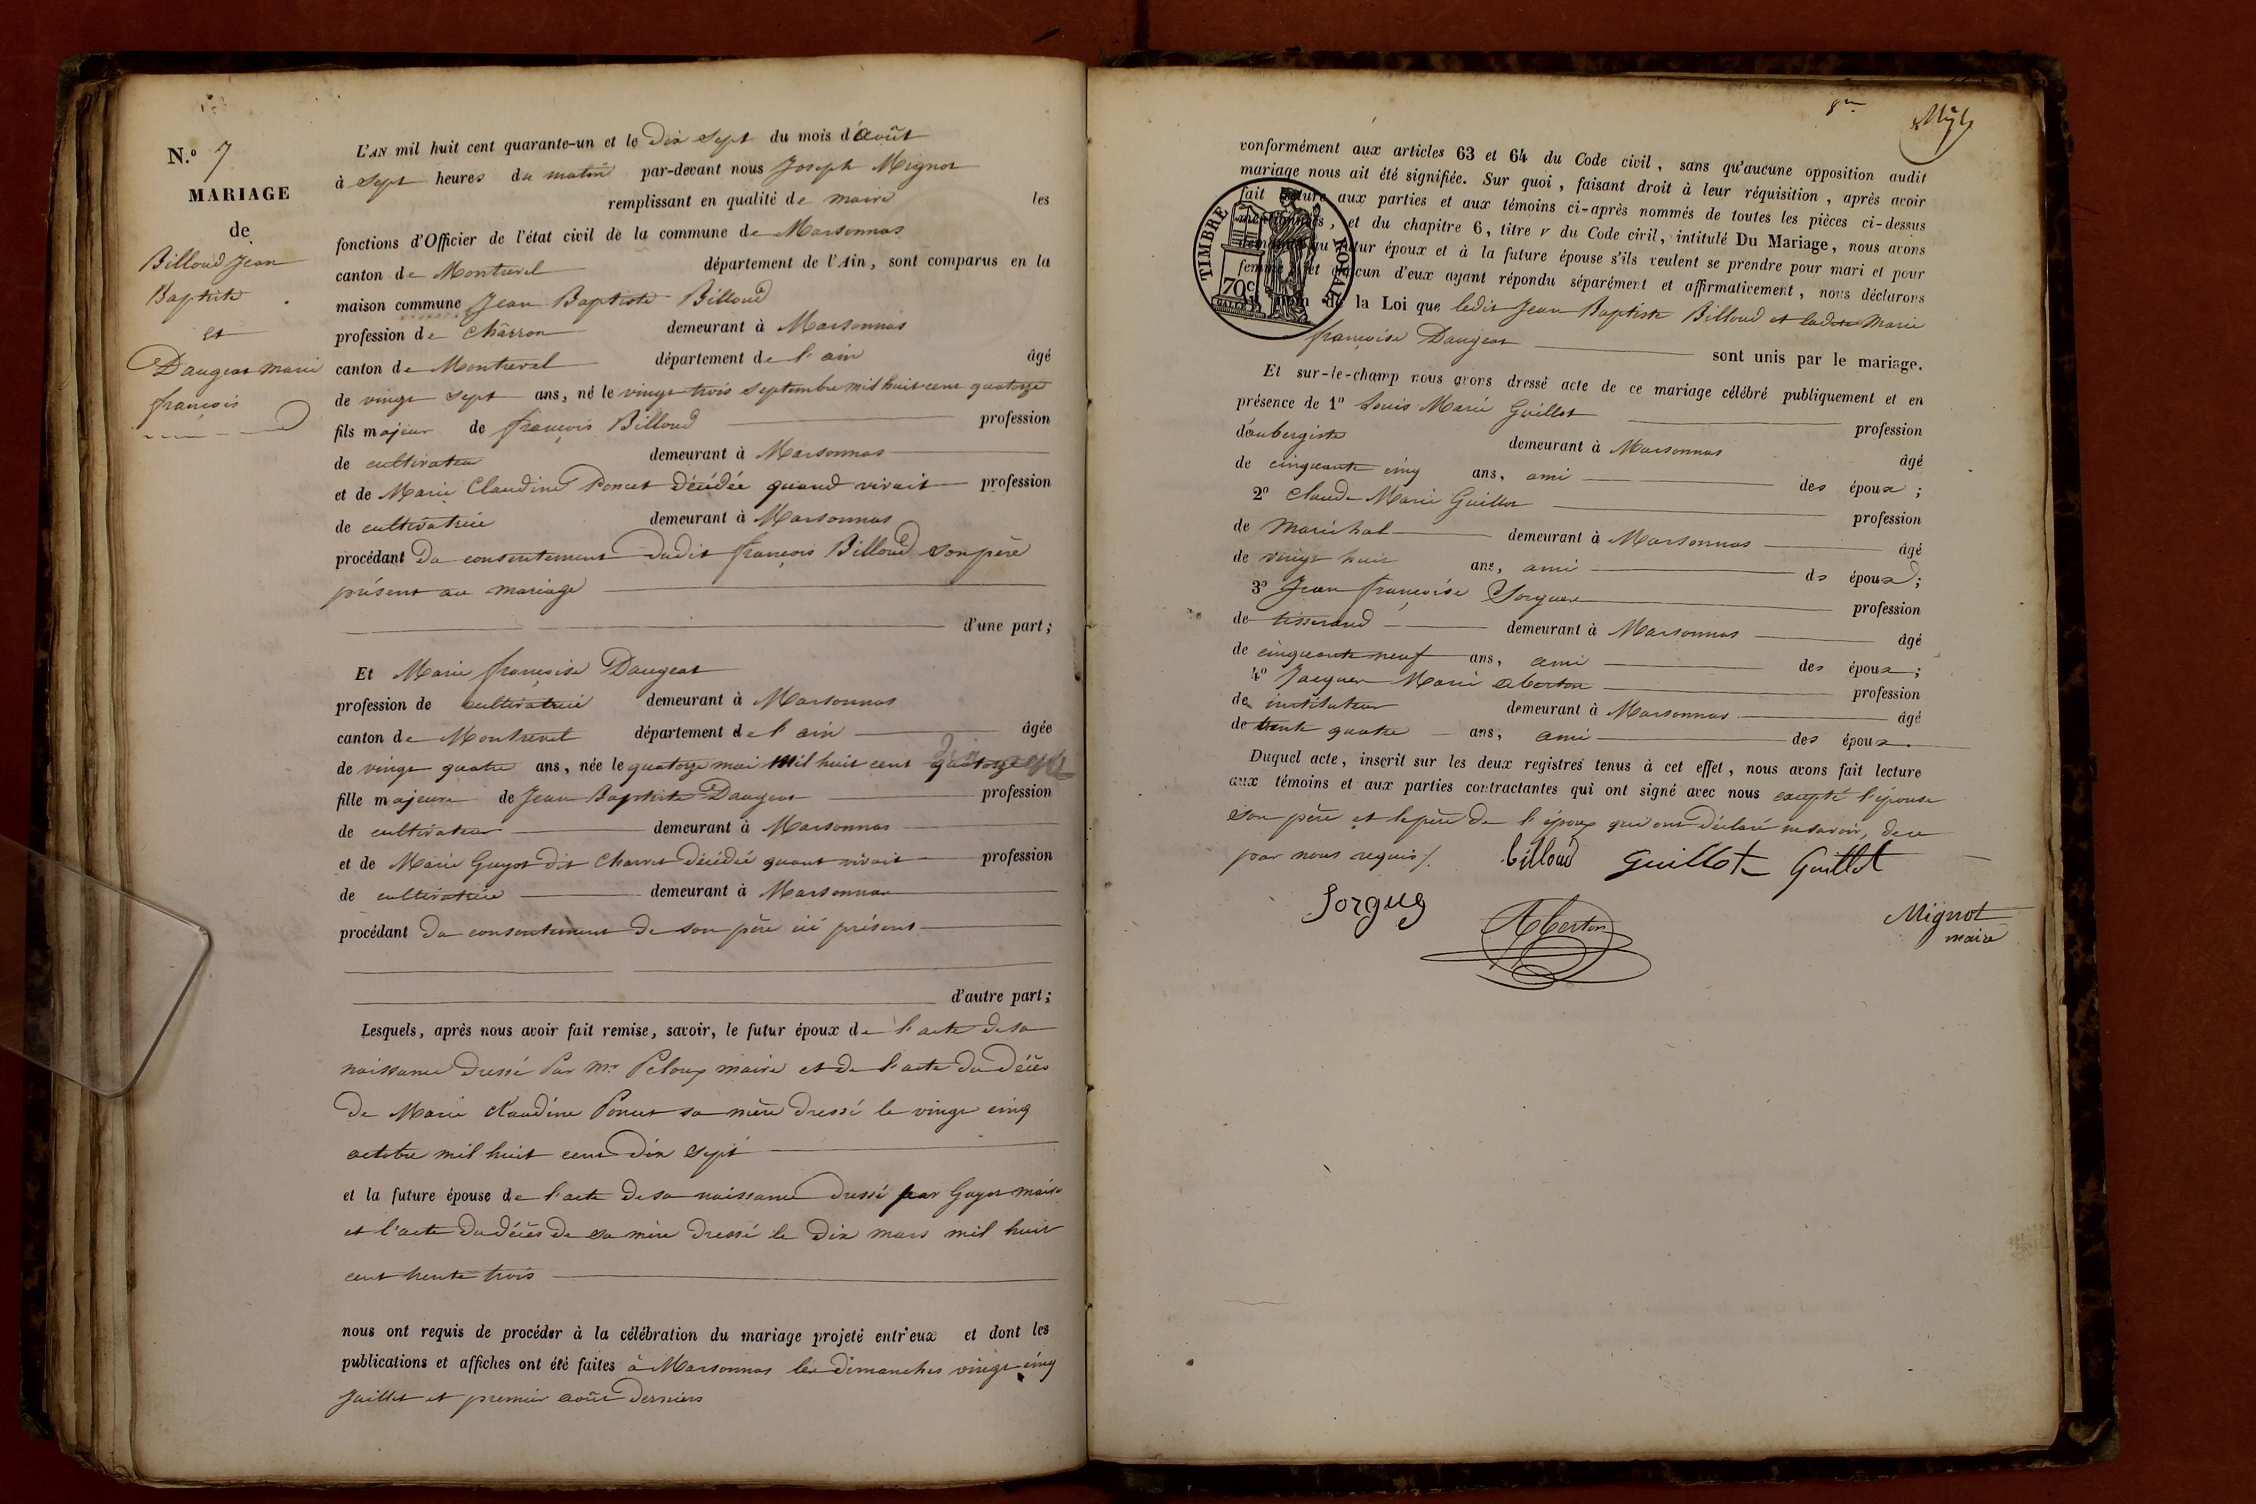 N.º 7
MARIAGE
de
Billoud Jean
Baptiste
et
Daugeat marie
françois
L'AN mil huit cent quarante-un et le Dix Sept du mois d'août
à sept heures du matin par-devant nous Joseph Mignot
remplissant en qualité de maire les
fonctions d'Officier de l'état civil de la commune de Marsonnas
canton de Montrevel département de l'Ain, sont comparus en la
maison commune Jean Baptiste Billoud
profession de Chârron demeurant à Marsonnas
canton de Montrevel département de l'ain âgé
de vingt sept ans, né le vingt trois septembre mil huit cent quatorze
fils majeur de françois Billoud profession
de cultivateur demeurant à Marsonnas
et de Marie Claudine Poncet Décédée quand vivait profession
de cultivatrice demeurant à Marsonnas
procédant Du consentement dudit françois Billoud son père
présent au mariage
d'une part;
Et Marie françoise Daugeat
profession de cultivatrice demeurant à Marsonnas
canton de Montrevel département de l'ain âgée
de vingt quatre ans, née le quatorze mai mil huit cent
fille majeure de Jean Baptiste Daugeat profession
de cultivateur demeurant à Marsonnas
et de Marie Guyot dit Charret Décédée quant vivait profession
de cultivatrice demeurant à Marsonnas
procédant du consentement de son père ici présent
d'autre part;
Lesquels, après nous avoir fait remise, savoir, le futur époux de l'acte de sa
naissance Dressé Par Mr Peloux maire et de l'acte du Décès
De Marie Claudine Poncet sa mère Dressé le vingt cinq
octobre mil huit cent Dix sept
et la future épouse de l'acte de sa naissance Dressé par Guyot maire
et l'acte du décès de sa mère Dressé le Dix mars mil huit
cent trente trois
nous ont requis de procéder à la célébration du mariage projeté entr'eux et dont les
publications et affiches ont été faites à Marsonnas les dimanches vingt cinq
Juillet et premier août Derniers
conformément aux articles 63 et 64 du Code civil, sans qu'aucune opposition audit
mariage nous ait été signifiée. Sur quoi, faisant droit à leur réquisition, après avoir
fait lecture aux parties et aux témoins ci-après nommés de toutes les pièces ci-dessus
mentionnées, et du chapitre 6, titre v du Code civil, intitulé Du Mariage, nous avons
demandé au futur époux et à la future épouse s'ils veulent se prendre pour mari et pour
femme; et chacun d'eux ayant répondu séparément et affirmativement, nous déclarons
TIMBRE ROYAL
70 c
au nom de la Loi que ledit Jean Baptiste Billoud et ladite Marie
françoise Daugeat sont unis par le mariage.
Et sur-le-champ nous avons dressé acte de ce mariage célébré publiquement et en
présence de 1º Louis Marie Guillot profession
d'aubergiste demeurant à Marsonnas âgé
de cinquante cinq ans, ami des époux;
2º Claude Marie Guillot profession
de Maréchal demeurant à Marsonnas âgé
de vingt huit ans, ami des époux;
3º Jean françoise Sorgues profession
de tisserand demeurant à Marsonnas âgé
de cinquante neuf ans, ami des époux;
4º Jacques Marie Aberton profession
de instituteur demeurant à Marsonnas âgé
de trente quatre ans, ami des époux.
Duquel acte, inscrit sur les deux registres tenus à cet effet, nous avons fait lecture
aux témoins et aux parties contractantes qui ont signé avec nous excepté l'épouse
son père et le père De l'époux qui ont Déclaré ne savoir, de ce
par nous requis/.
billoud Guillot Guillot
Sorgue
Aberton
Mignot
maire